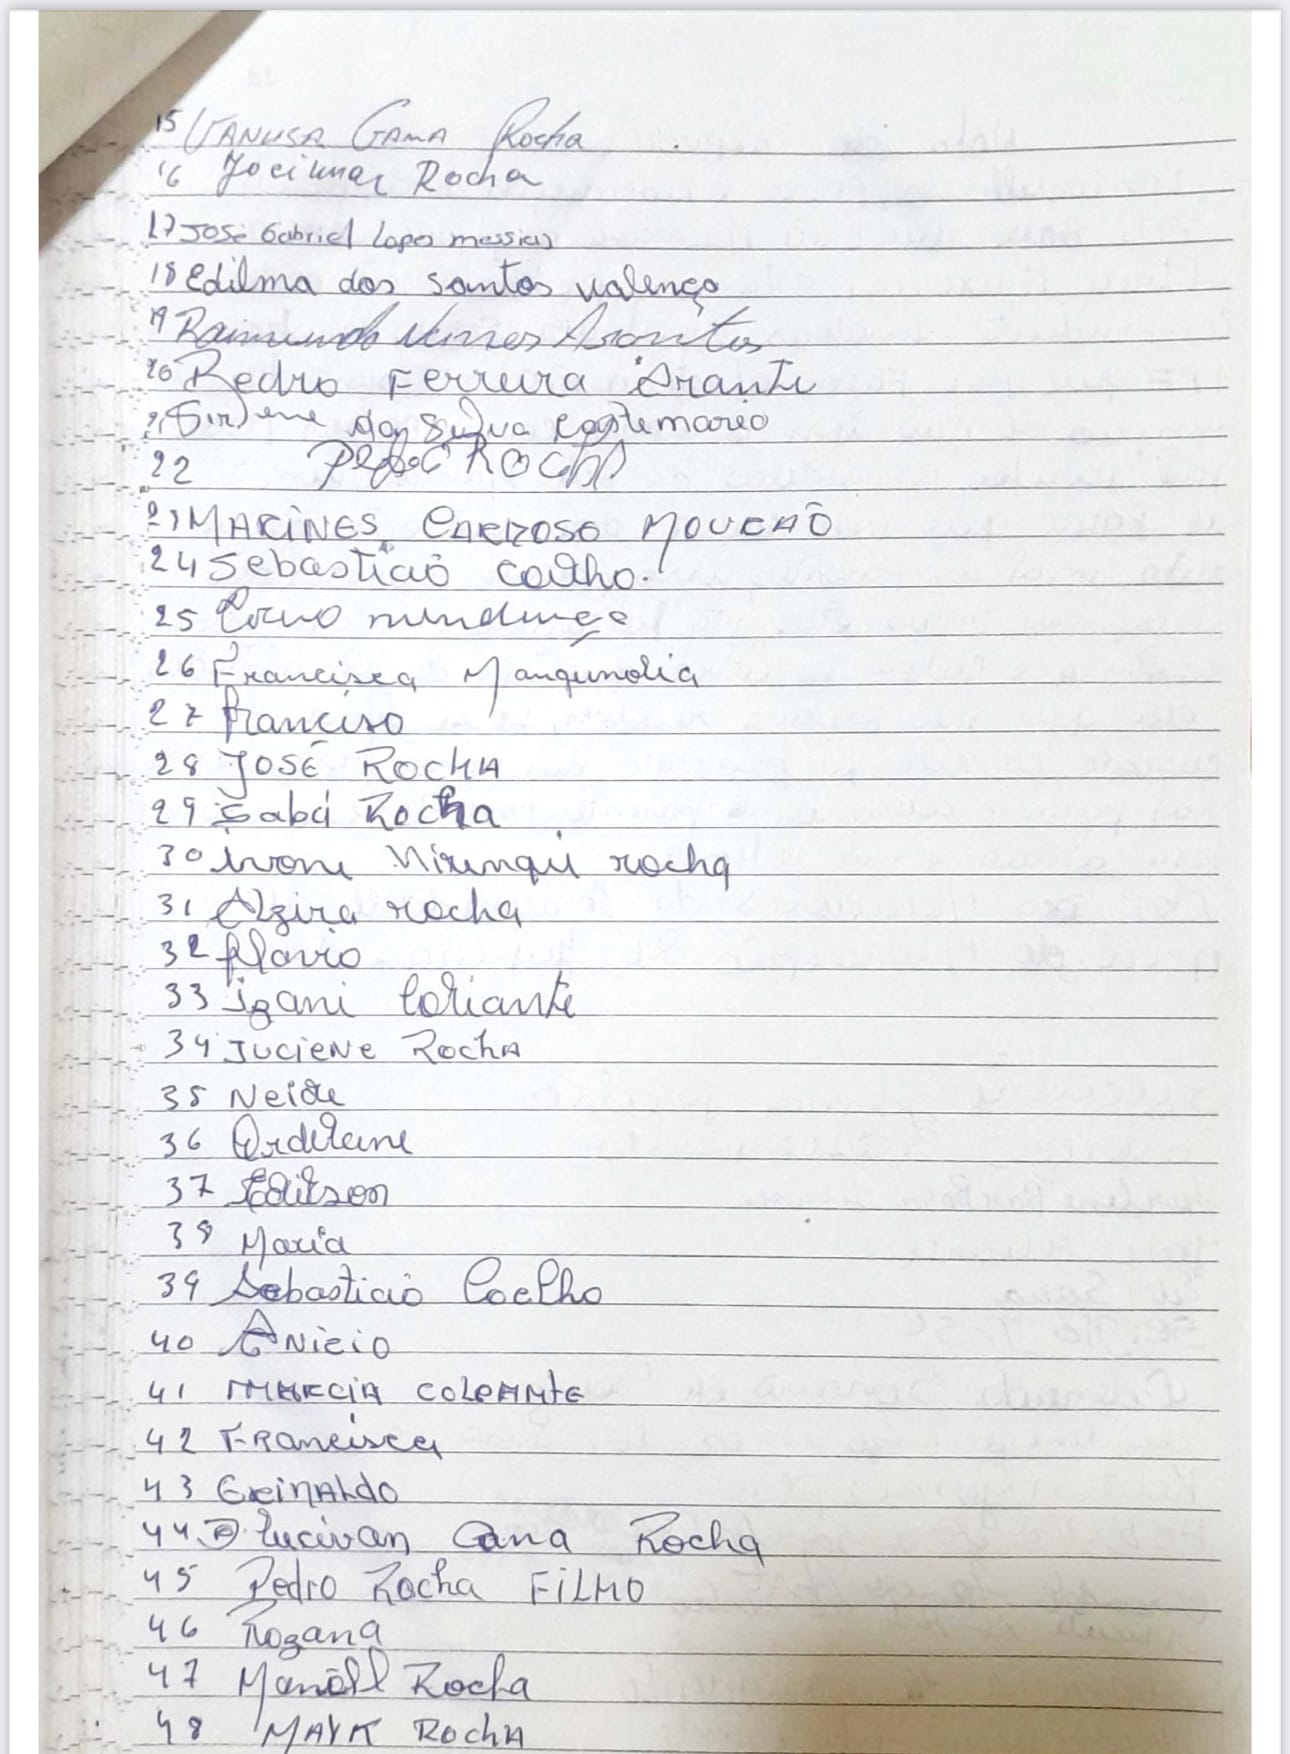 15 Vanusa Gama Rocha
16 Jocimar Rocha
17 José Gabriel Lopes messias
18 Edilma dos santos valença
19 Raimundo Nunes Arantes
20 Pedro Ferreira Arante
21 da Silva
22 Pedro Rocha
23 MARINES CARDOSO MOURÃO
24 Sebastião Coelho
25
26 Francisca
27 franciso
28 JOSÉ ROCHA
29 Sabá Rocha
30 Ivone rocha
31 Alzira rocha
32 flavio
33 izani Coliante
34 Juciene Rocha
35 Neide
36
37 Edilson
38 Maria
39 Sebastião Coelho
40 Anicio
41 MARCIA COLEANTE
42 Francisca
43 Geinaldo
44 Lucivan Gana Rocha
45 Pedro Rocha FILHO
46 Rozana
47 Manoel Rocha
48 MAYK ROCHA